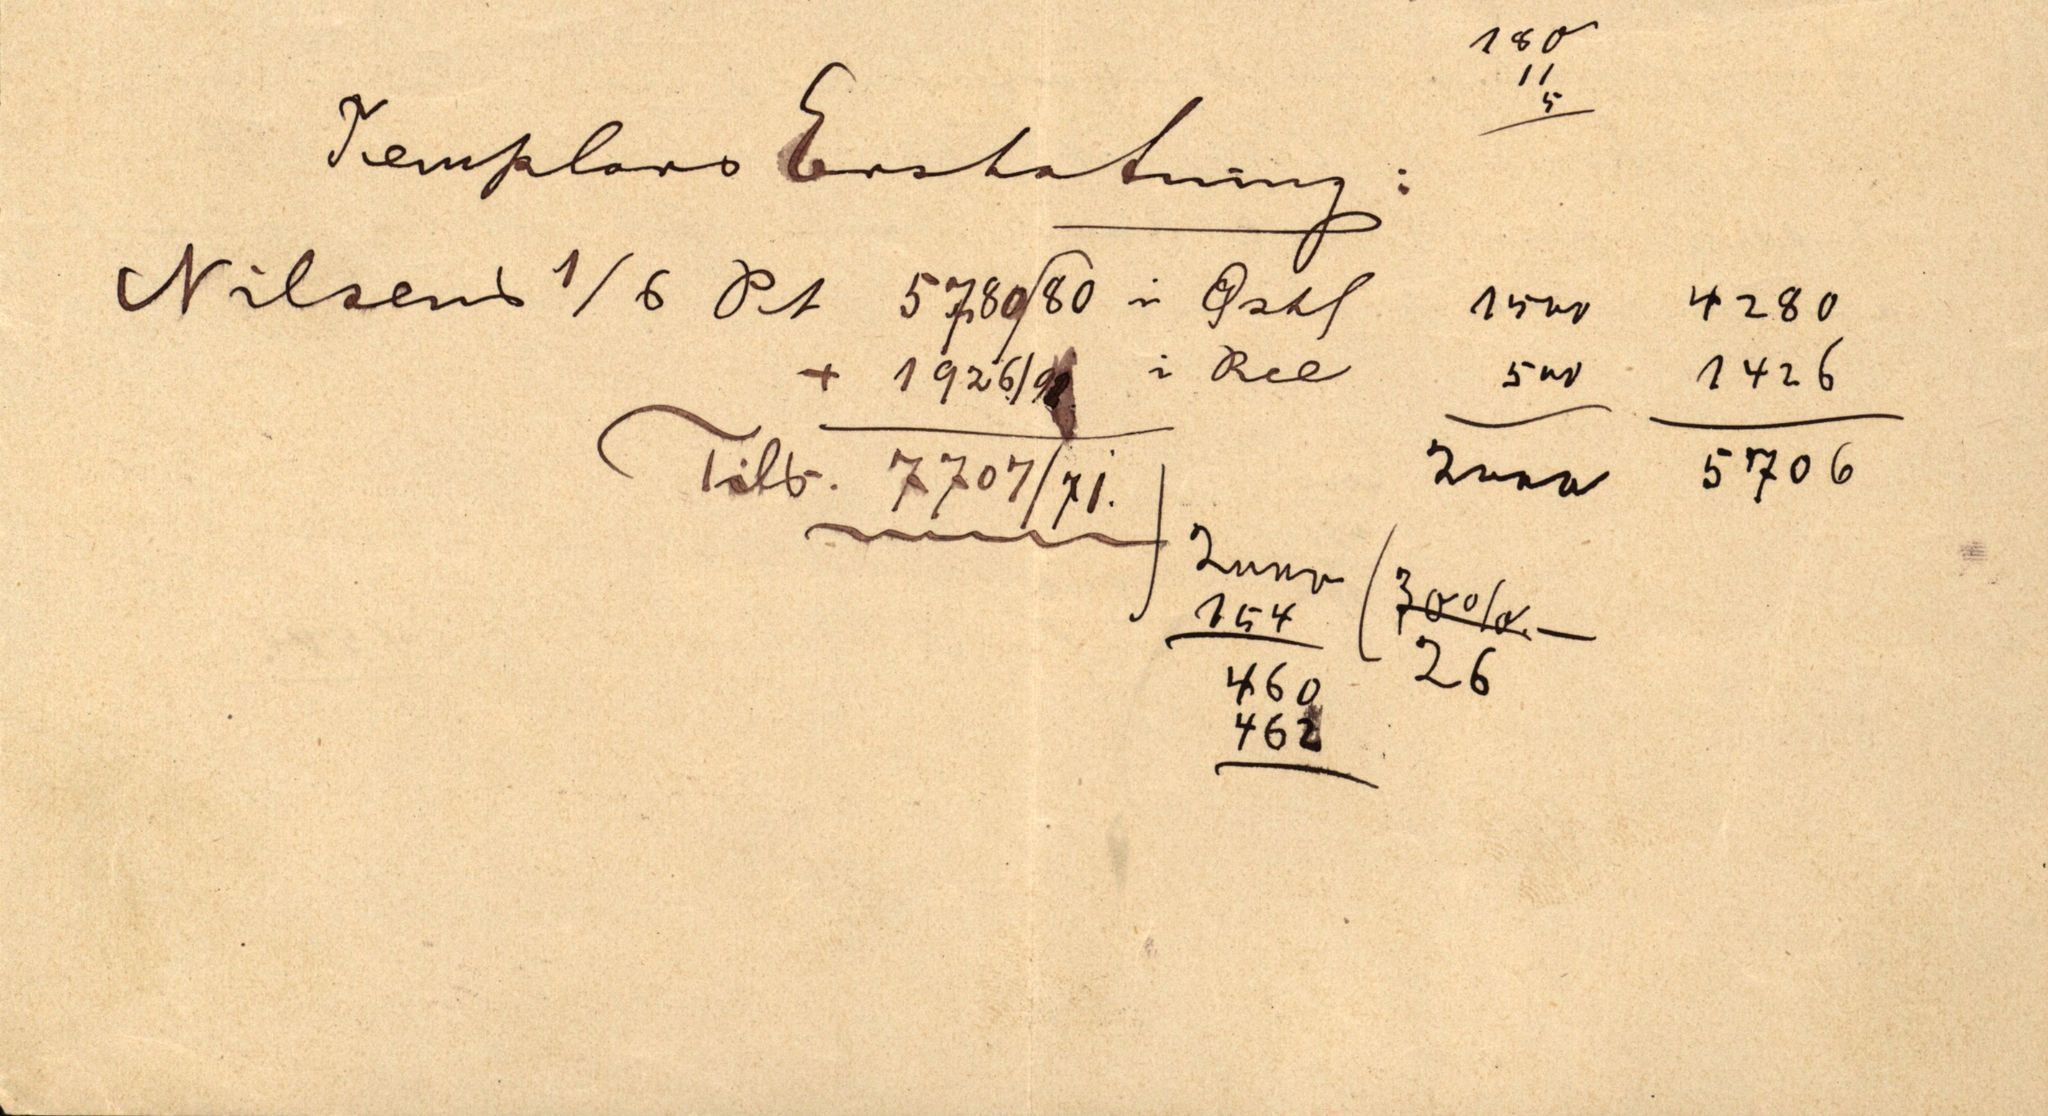 180
11
5
Templars Erstatning :
Nilsens 1/6 Pt 5780/80 i Østl 1500 4280
+ 1926/90 i Rec 500 1426
Tils. 7707/71. 2000 5706
2000 30%
154 26
460
462